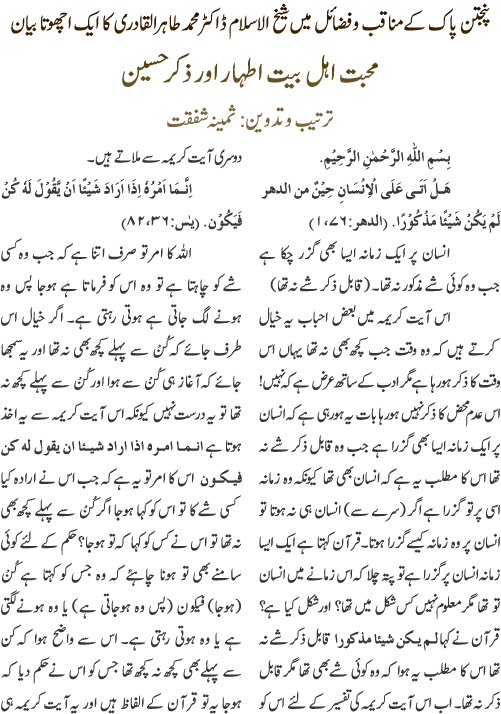 پنجتن پاک کے مناقب و فضائل میں شیخ الاسلام ڈاکٹر محمد طاہر القادری کا ایک اچھوتا بیان
محبت اہل بیت اطہار اور ذکر حسین
ترتیب و تدوین: ثمینہ شفقت
بِسْمِ اللهِ الرَّحْمٰنِ الرَّحِيْمِ.
هَلْ اَتٰى عَلَى الْاِنْسَانِ حِيْنٌ من الدهر
لَمْ يَكُنْ شَيْئًا مَذْكُوْرًا. (الدهر:۷۶،۱)
انسان پر ایک زمانہ ایسا بھی گزر چکا ہے
جب وہ کوئی شے مذکور نہ تھا۔ (قابل ذکر شے نہ تھا)
اس آیت کریمہ میں بعض احباب یہ خیال
کرتے ہیں کہ وہ وقت جب کچھ بھی نہ تھا یہاں اس
وقت کا ذکر ہورہا ہے مگر ادب کے ساتھ عرض ہے کہ نہیں!
اس عدم محض کا ذکر نہیں ہورہا بات یہ ہورہی ہے کہ انسان
پر ایک زمانہ ایسا بھی گزرا ہے جب وہ قابل ذکر شے نہ
تھا اس کا مطلب یہ ہے کہ انسان بھی تھا کیونکہ وہ زمانہ
اسی پر تو گزرا ہے اگر (سرے سے) انسان ہی نہ ہوتا تو
انسان پر وہ زمانہ کیسے گزرا ہوتا۔ قرآن کہتا ہے ایک ایسا
زمانہ انسان پر گزرا ہے تو پتہ چلا کہ اس زمانے میں انسان
تھا مگر معلوم نہیں کس شکل میں تھا؟ اور شکل کیا ہے؟
قرآن نے کہا لم یکن شیئا مذکورا قابل ذکر شے نہ
تھا اس کا مطلب یہ ہوا کہ وہ کوئی شے بھی تھا مگر قابل
ذکر نہ تھا۔ اب اس آیت کریمہ کی تفسیر کے لئے اس کو
دوسری آیت کریمہ سے ملاتے ہیں۔
اِنَّمَا اَمْرُهُ اِذَا اَرَادَ شَيْئًا اَنْ يَّقُوْلَ لَهُ كُنْ
فَيَكُوْن. (يٰس:۸۲،۳۶)
اللہ کا امر تو صرف اتنا ہے کہ جب وہ کسی
شے کو چاہتا ہے تو وہ اس کو فرماتا ہے ہوجا پس وہ
ہونے لگ جاتی ہے ہوتی رہتی ہے۔ اگر خیال اس
طرف جائے کہ کُنْ سے پہلے کچھ بھی نہ تھا اور یہ سمجھا
جائے کہ آغاز ہی کُنْ سے ہوا اور کُنْ سے پہلے کچھ نہ
تھا تو یہ درست نہیں کیونکہ اس آیت کریمہ سے یہ اخذ
ہوتا ہے انما امره اذا اراد شیئا ان یقول له کن
فیکون اس کا امر تو یہ ہے کہ جب اس نے ارادہ کیا
کسی شے کا تو اس کو کہا ہوجا اگر کُنْ سے پہلے کچھ بھی
نہ تھا تو اس نے کس کو کہا کہ تو ہوجا؟ حکم کے لئے کوئی
سامنے بھی تو ہونا چاہئے کہ وہ جس کو کہتا ہے کُنْ
(ہوجا) فیکون (پس وہ ہوجاتی ہے) یا وہ ہونے لگتی
ہے یا وہ ہوتی رہتی ہے۔ اس سے واضح ہوا کہ کن
سے پہلے بھی کچھ نہ کچھ تھا جس کو اس نے حکم دیا کہ
ہوجا یہ تو قرآن کے الفاظ ہیں اور یہ آیت کریمہ ہی